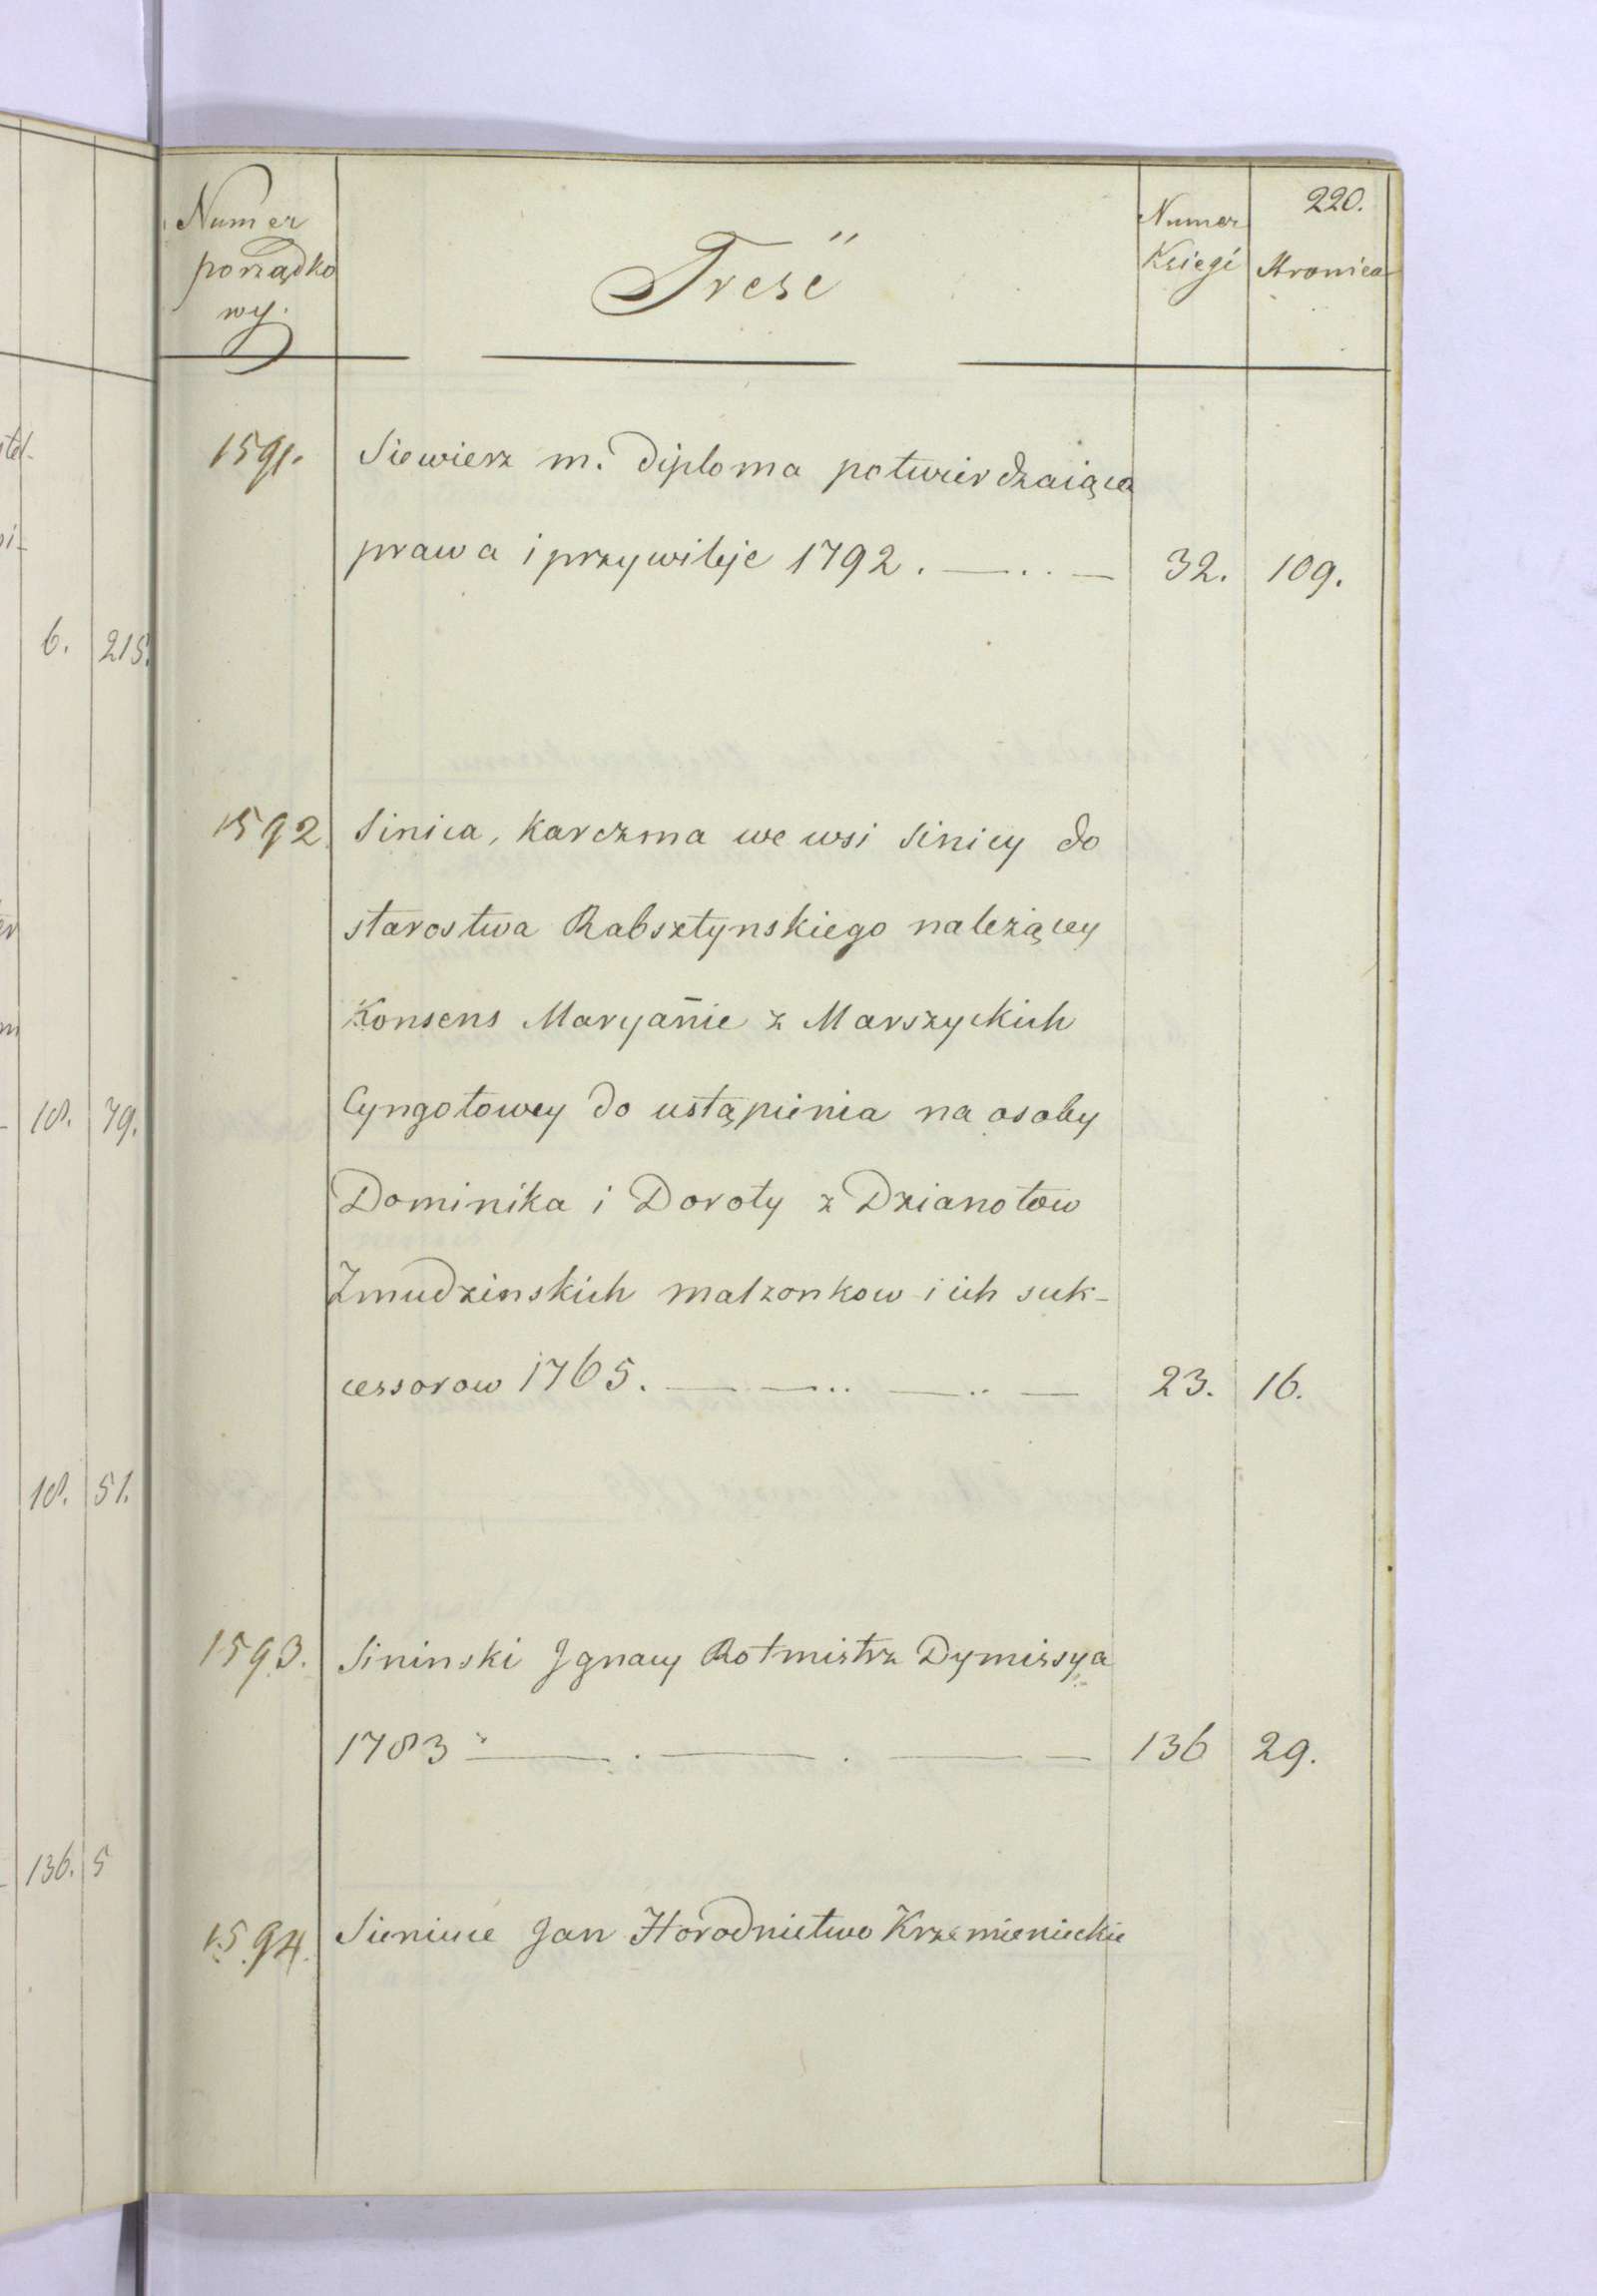 220.
Numer porządko wy.
Treść
Numer Księgi
Stronica
1591. Siewierz m. Diploma potwierdzaiąca
prawa i przywileje 1792. 32. 109.
1592. Sinica, karczma we wsi Sinicy do
starostwa Rabsztynskiego należącey
Konsens Maryan̄ie z Marszyckich
Cyngotowey do ustąpienia na osoby
Dominika i Doroty z Dzianotow
Żmudzinskich małzonkow i ich suk-
cessorow 1765. 23. 16.
1593. Sininski Ignacy Rotmistrz Dymissya
1783 136 29.
1594. Sieniuc Jan Horodnictwo Krzemienieckie
6. 215.
18. 79.
18. 51.
136. 5